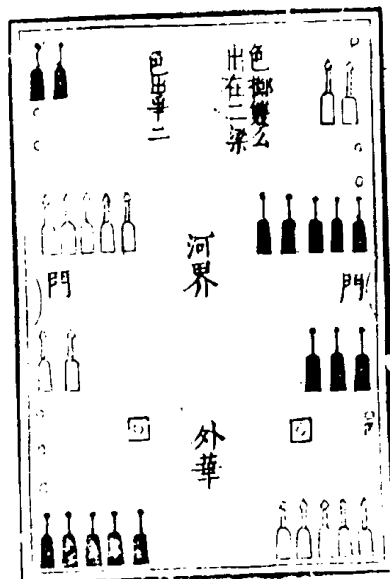 色擲么
出在二梁
色出二
河界
門
門
外華